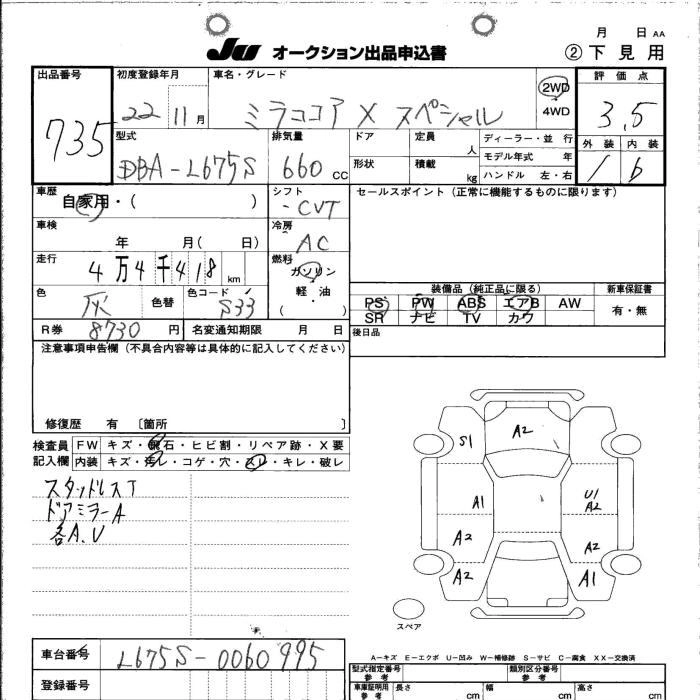 月 日 AA
JU オークション出品申込書 ② 下見用
出品番号 初度登録年月 車名・グレード 評価点
735 22 11月 ミラココア X スペシャル 2WD 4WD 3.5
型式 排気量 ドア 定員 人 ディーラー・並 行 外装 内装
DBA-L675S 660 cc 形状 積載 kg モデル年式 年 1 b
ハンドル 左・右
車歴 シフト セールスポイント (正常に機能するものに限ります)
自家用・( ) -CVT
車検 冷房
年 月( 日) AC
走行 燃料
4万4千418km ガソリン
軽・油
( )
色 色替 色コード 装備品 (純正品に限る) 新車保証書
灰 S33 PS PW ABS エアB AW 有・無
SR ナビ TV カワ
R券 8730円 名変通知期限 月 日 後日品
注意事項申告欄 (不具合内容等は具体的に記入してください)
修復歴 有 〔箇所 〕
検査員 FW キズ・飛石・ヒビ割・リペア跡・X要
記入欄 内装 キズ・汚レ・コゲ・穴・スレ・キレ・破レ
スタッドレスT
ドアミラーA
各A.U
S1 A2
A1 U1
A2
A2 A2
A2 A1
スペア
A-キズ E-エクボ U-凹み W-補修跡 S-サビ C-腐食 XX-交換済
車台番号 L675S-0060995
登録番号
型式指定番号 参考 類別区分番号 参考
車庫証明用 参考 長さ cm 幅 cm 高さ cm